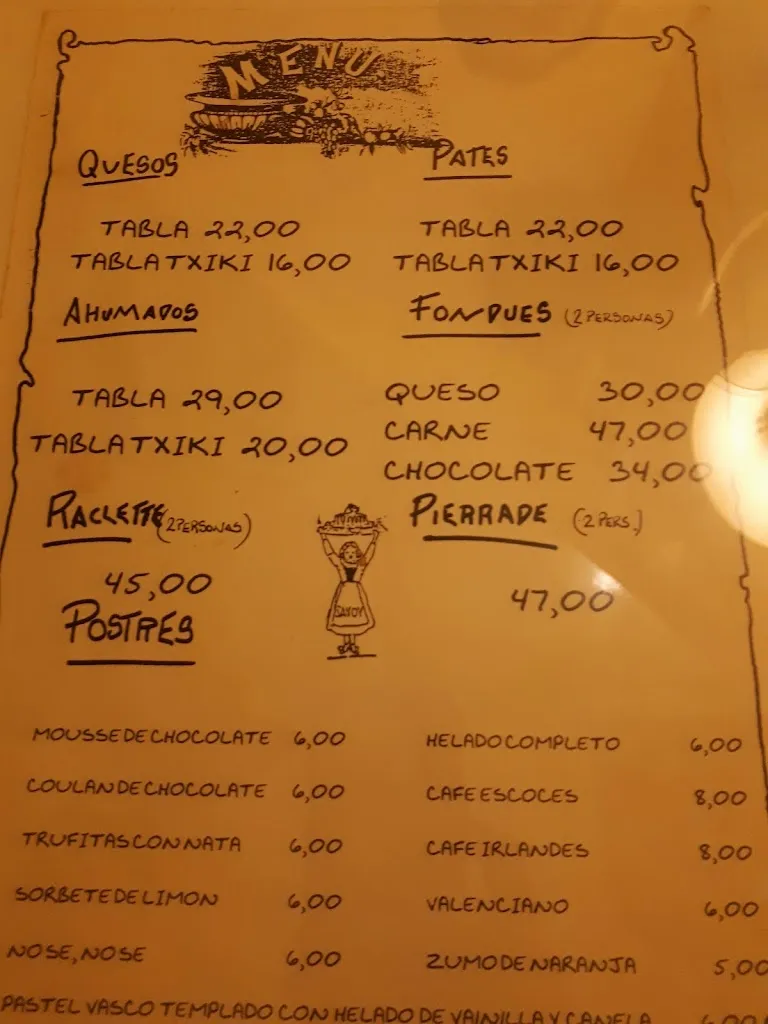 MENU
QUESOS
TABLA 22,00
TABLA TXIKI 16,00
PATES
TABLA 22,00
TABLA TXIKI 16,00
AHUMADOS
TABLA 29,00
TABLA TXIKI 20,00
FONDUES (2 PERSONAS)
QUESO 30,00
CARNE 47,00
CHOCOLATE 34,00
RACLETTE (2 PERSONAS)
45,00
SAVOY
PIERRADE (2 PERS.)
47,00
POSTRES
MOUSSE DE CHOCOLATE 6,00
COULAN DE CHOCOLATE 6,00
TRUFITAS CON NATA 6,00
SORBETE DE LIMON 6,00
NO SE, NO SE 6,00
HELADO COMPLETO 6,00
CAFE ESCOCES 8,00
CAFE IRLANDES 8,00
VALENCIANO 6,00
ZUMO DE NARANJA 5,00
PASTEL VASCO TEMPLADO CON HELADO DE VAINILLA Y CANELA 6,00